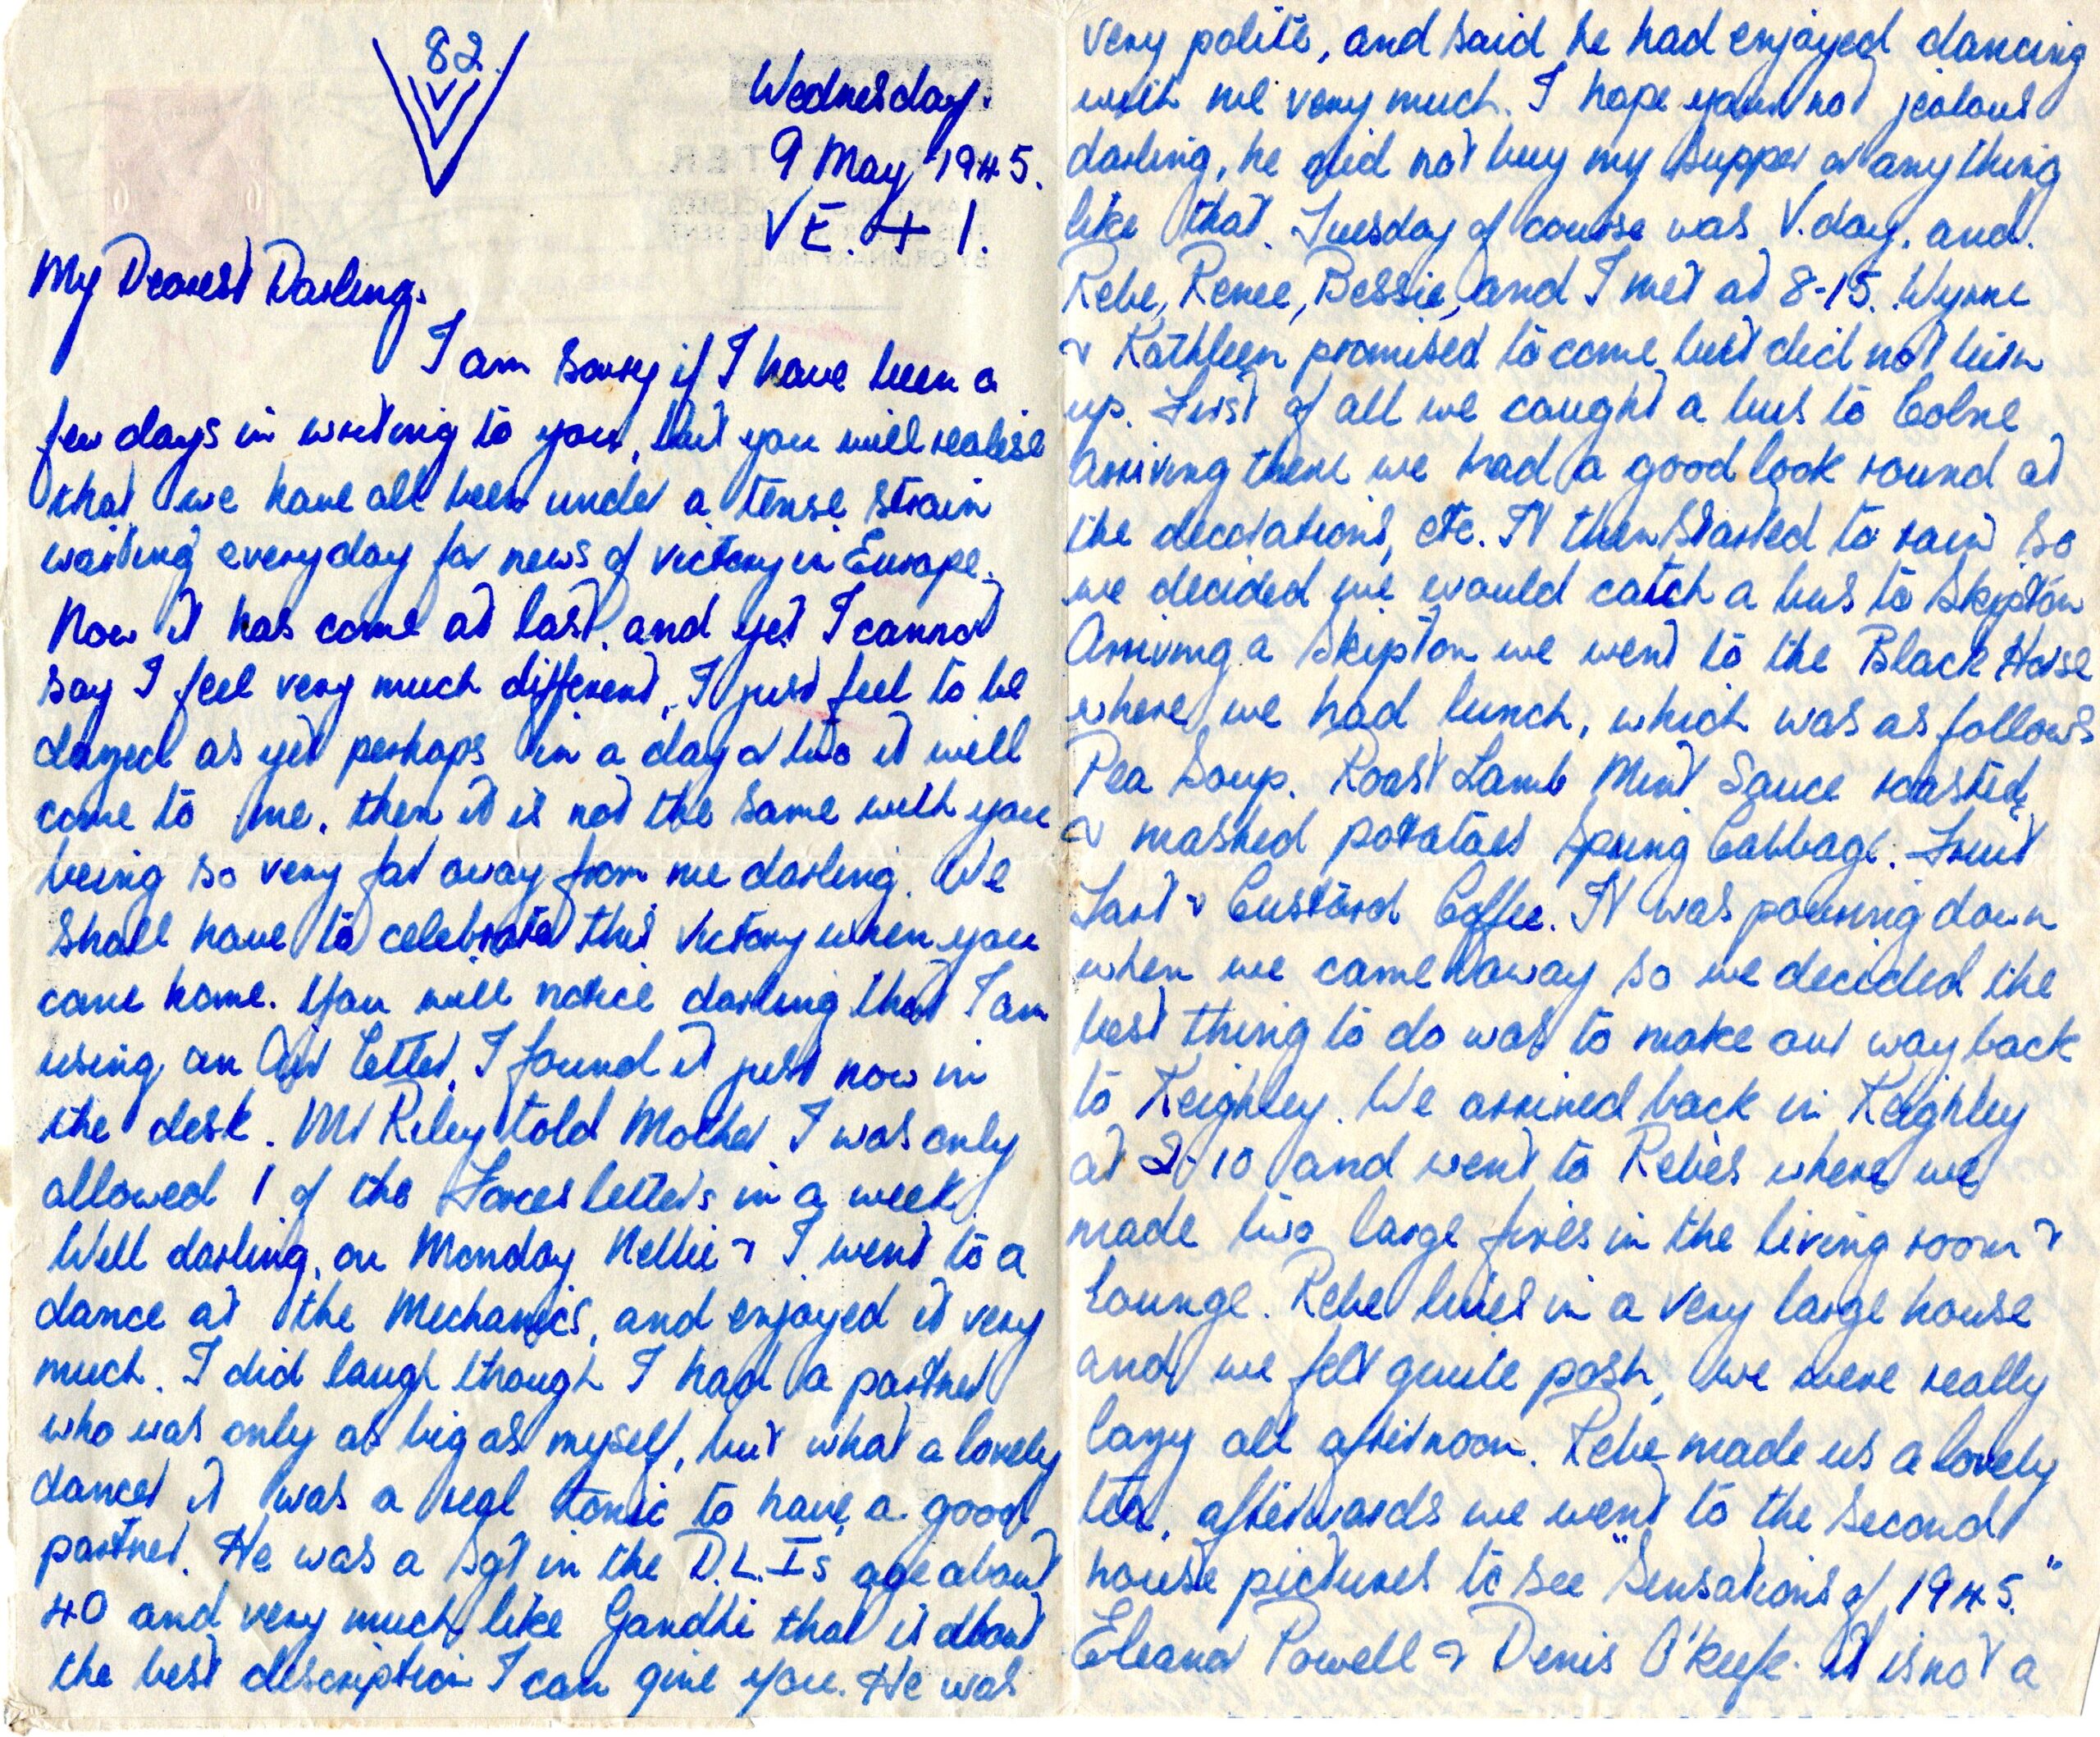 82.
Wednesday.
9 May 1945.
VE. + 1.
My Dearest Darling.
I am sorry if I have been a
few days in writing to you, but you will realise
that we have all been under a tense strain
waiting everyday for news of victory in Europe.
Now it has come at last. and yet I cannot
say I feel very much different, I just feel to be
dazed as yet perhaps in a day or two it will
come to me. then it is not the same with you
being so very far away from me darling. We
shall have to celebrate this victory when you
come home. You will notice darling that I am
using an Air Letter. I found it just now in
the desk. Mr Riley told Mother I was only
allowed 1 of the Forces letters in a week
Well darling, on Monday Nellie & I went to a
dance at the Mechanics, and enjoyed it very
much. I did laugh though I had a partner
who was only as big as myself, but what a lovely
dancer it was a real tonic to have a good
partner. He was a Sgt in the D.L.Is age about
40 and very much like Gandhi that is about
the best description I can give you. He was
very polite, and said he had enjoyed dancing
with me very much. I hope your not jealous
darling, he did not buy my supper or anything
like that. Tuesday of course was V.day. and
Rebe, Renee, Bessie, and I met at 8-15. Wynne
& Kathleen promised to come but did not turn
up. First of all we caught a bus to Colne
Arriving there we had a good look round at
the decorations, etc. It then started to rain so
we decided we would catch a bus to Skipton
Arriving a Skipton we went to the Black Horse
where we had lunch, which was as follows
Pea Soup. Roast Lamb Mint Sauce roasted
& mashed potatoes Spring Cabbage. Fruit
Tart & Custard Coffee. It was pouring down
when we came away so we decided the
best thing to do was to make our way back
to Keighley. We arrived back in Keighley
at 2-10 and went to Rebe's where we
made two large fires in the living room &
Lounge. Rebe lives in a very large house
and we felt quite posh, we were really
lazy all afternoon. Rebe made us a lovely
tea, afterwards we went to the second
house pictures to see "Sensations of 1945."
Eleanor Powell & Denis O'Keefe. It is not a